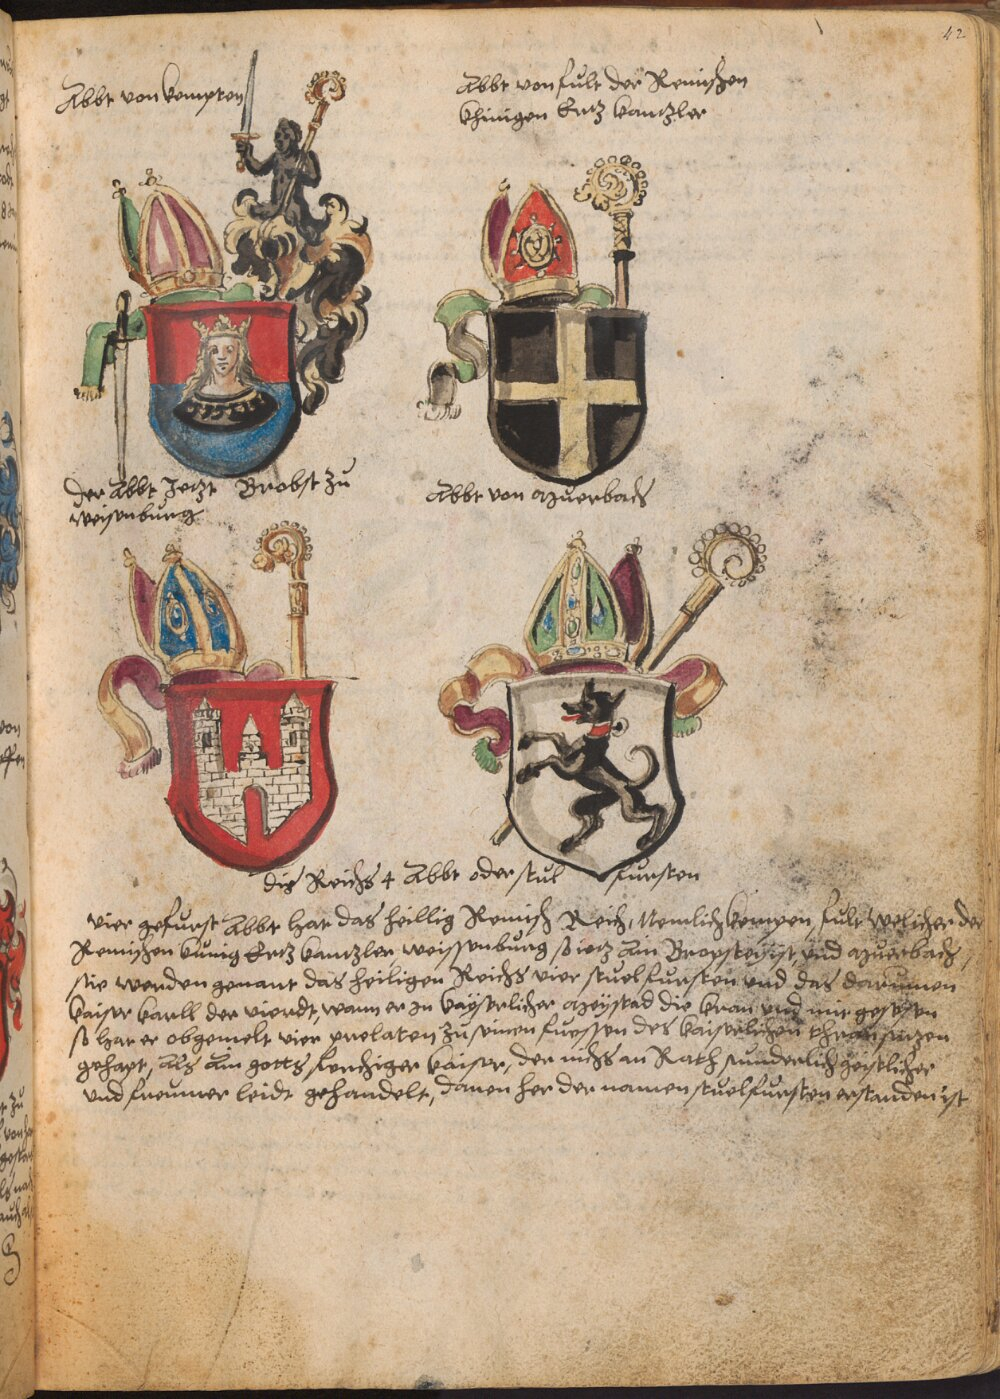 42
Abbt von kempten
Abbt von fult der Remischen
khinigen Ertz kantzler
der Abbt Jetzt Brobst zu
weisenburg
Abbt von Muerbach
die Reichs 4 Abbt oder stul fursten
vier gefurst Abbt hat das heillig Remisch Reich, Nemlich kempen, fult welicher der
Remischen kunig Ertz kantzler, weissenburg so ietz ain Bropstey ist, und Muerbach,
sie werden genant das heiligen Reichs vier stuelfursten und das darumen
kaiser karll der vierdt, wann er in kayserlicher Meystad die kran und mit gesessen
so hat er obgemelt vier prelaten zu seinen fuessen des kaiserlichen thran sitzen
gehapt, als ain gotts forchtiger kaiser, der nichs an Rath sunderlich geistlicher
und fromer leidt gehandelt, danen her der namen stuelfursten erstanden ist